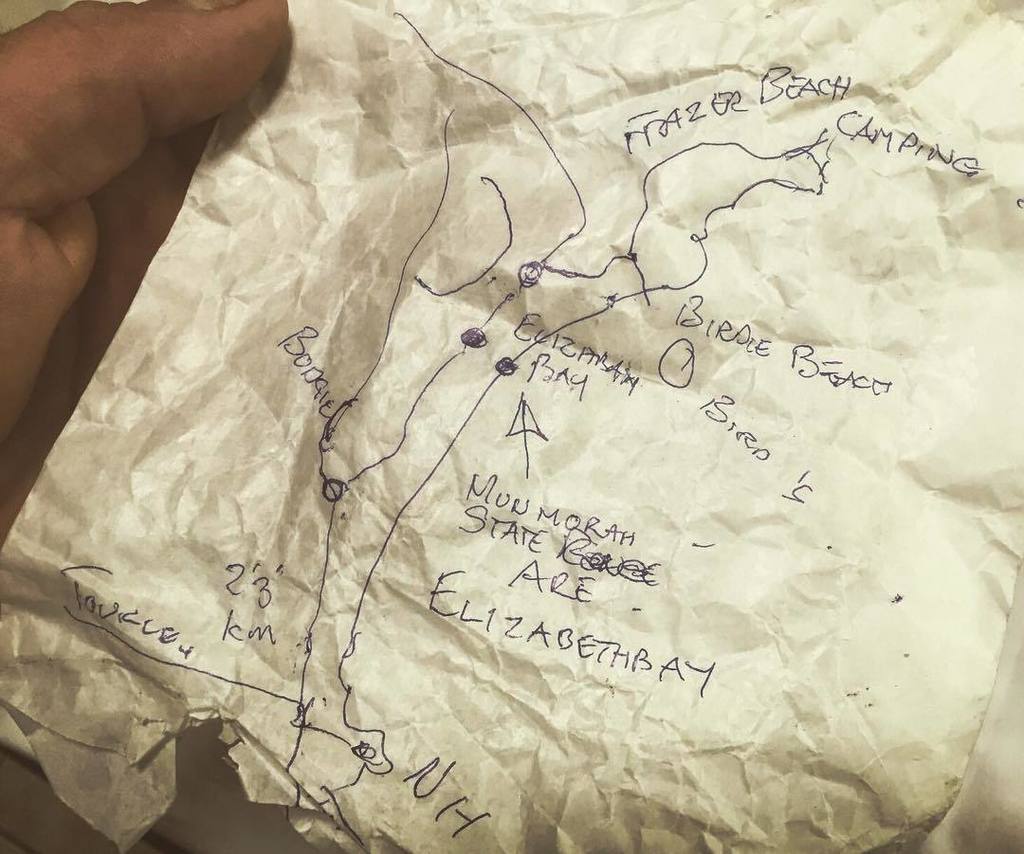 FRAZER BEACH
CAMPING
BIRDIE BEACH
ELIZABETH
BAY
BUDGIE
BIRD 'S
MUNMORAH
STATE
ARE
ELIZABETHBAY
2'3'
km
NH